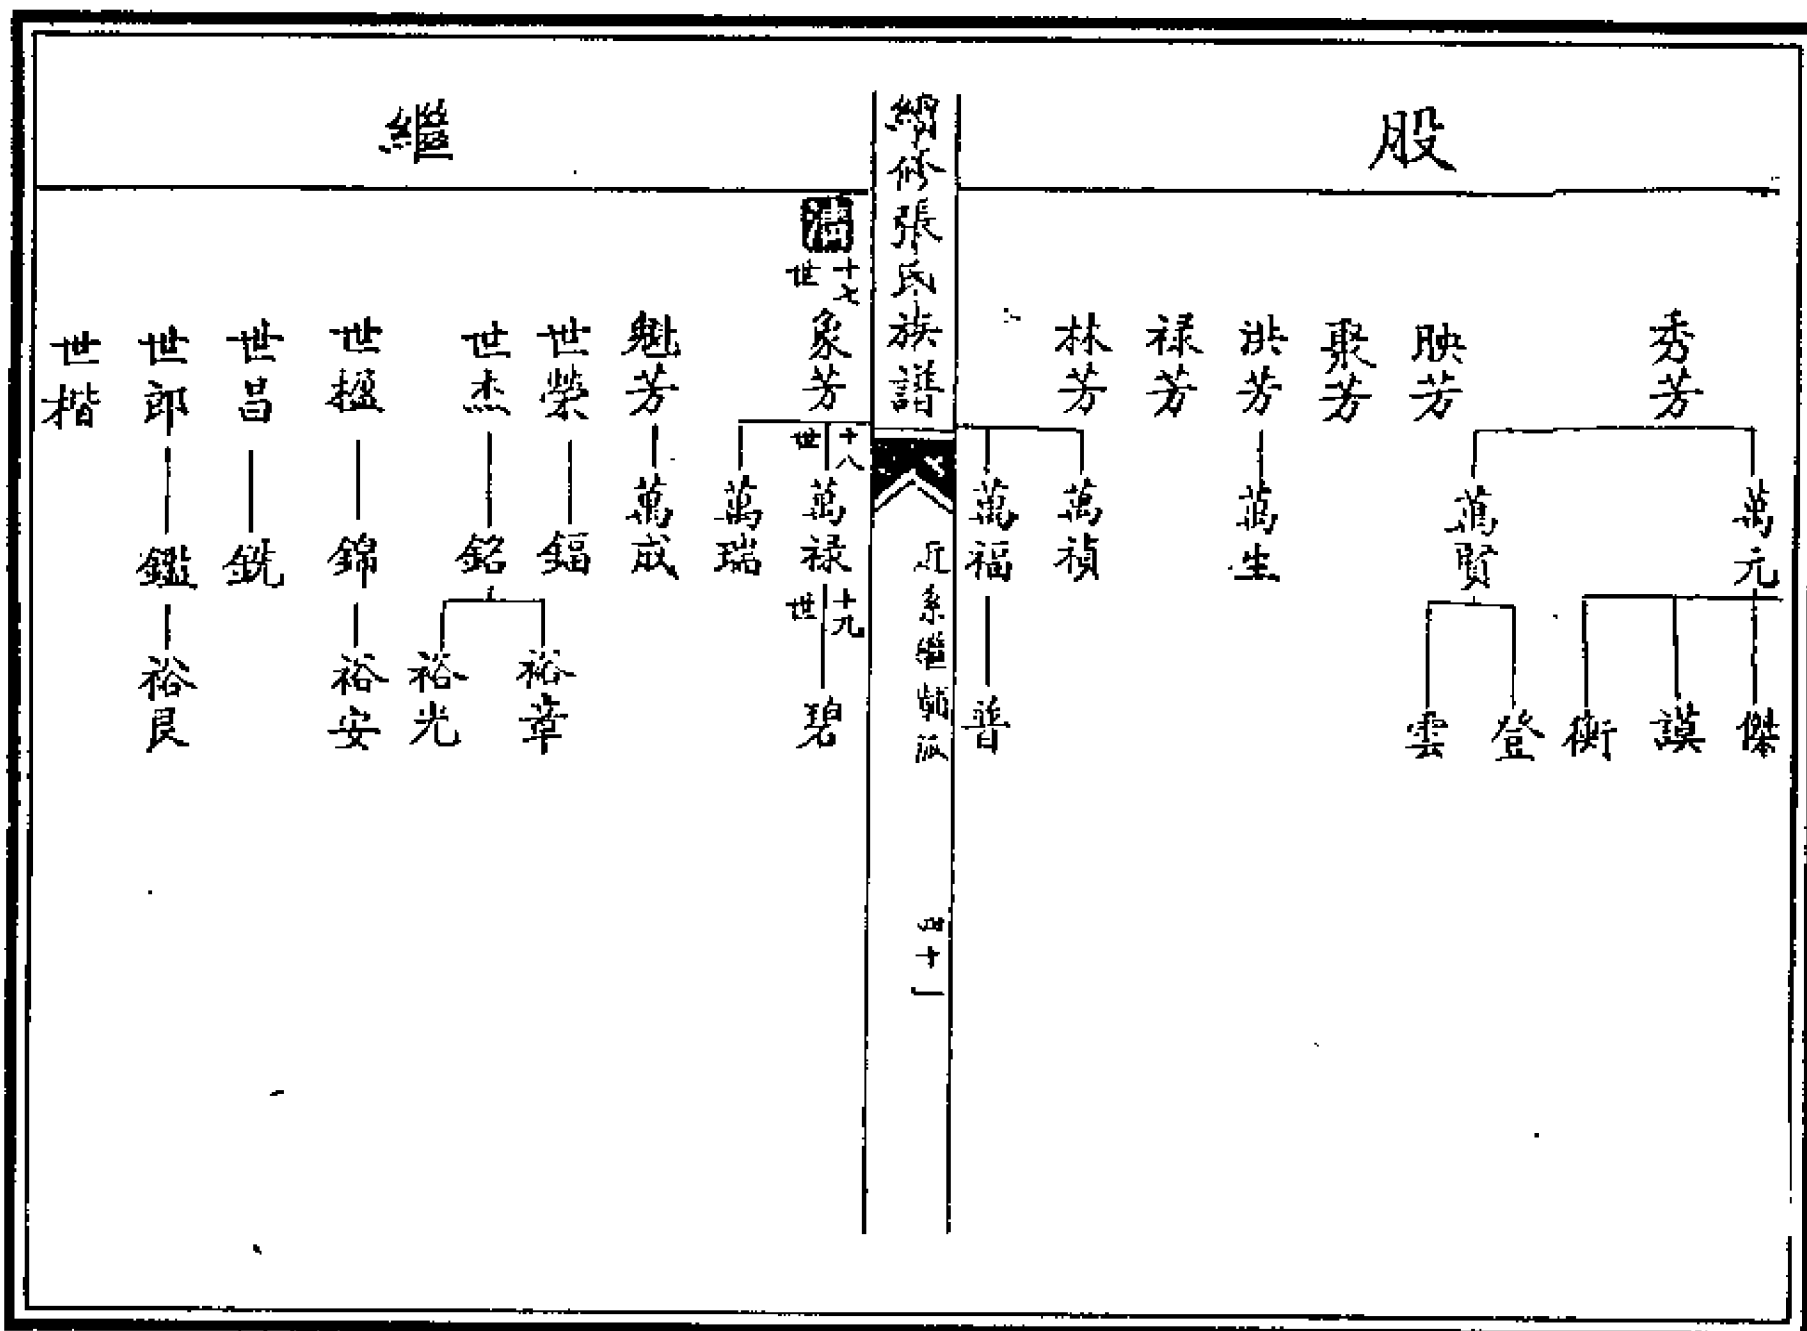 股
秀芳
萬元
傑
謨
衡
萬賢
登
雲
映芳
聚芳
洪芳
萬生
祿芳
林芳
萬禎
萬福
普
續修張氏族譜
百十一
繼
清
十七世
象芳
十八世
萬祿
十九世
碧
萬瑞
魁芳
萬成
世榮
鍢
世杰
銘
裕章
裕光
世楹
錦
裕安
世昌
銑
世郎
鑑
裕艮
世楷